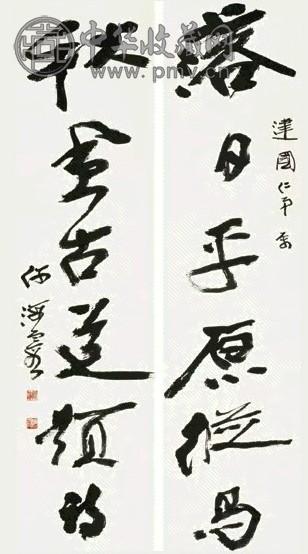 中华收藏网
www.pmv.cn
建國仁弟属
落日平原縱馬
秋風古道題詩
何海霞